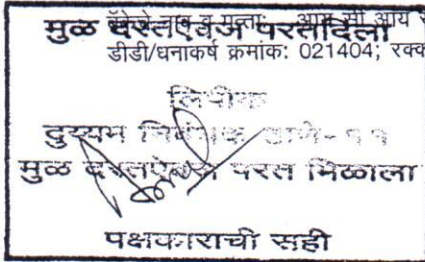 बँकेचे नाव व पत्ता: आय सी आय
मुळ दस्तऐवज परत दिला
डीडी/धनाकर्ष क्रमांक: 021404; रक्क
लिपीक
दुय्यम निबंधक ठाणे-११
मुळ दस्तऐवज परत मिळाला
पक्षकाराची सही